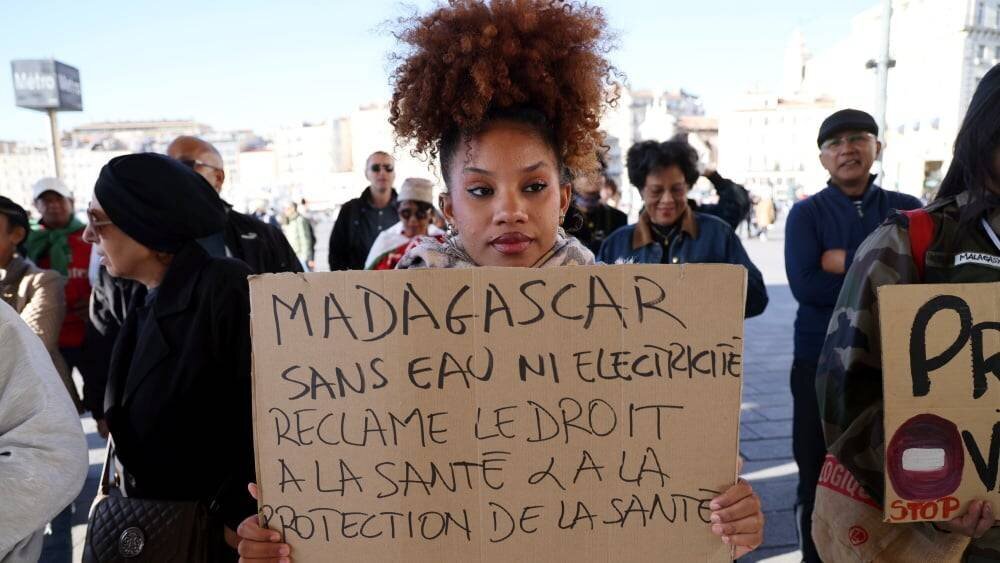 Métro
MADAGASCAR
SANS EAU NI ELECTRICITÉ
RECLAME LE DROIT
A LA SANTÉ & A LA
PROTECTION DE LA SANTÉ
MALAGAS
PR
OV
STOP
LOGIC